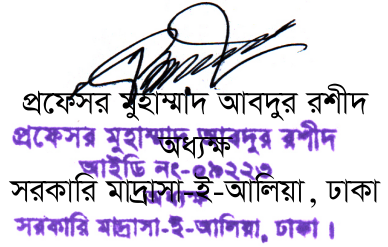 প্রফেসর মুহাম্মাদ আবদুর রশীদ
প্রফেসর মুহাম্মাদ আবদুর রশীদ
অধ্যক্ষ
আইডি নং-০৯২২৩
সরকারি মাদ্রাসা-ই-আলিয়া, ঢাকা
অধ্যক্ষ
সরকারি মাদ্রাসা-ই-আলিয়া, ঢাকা।